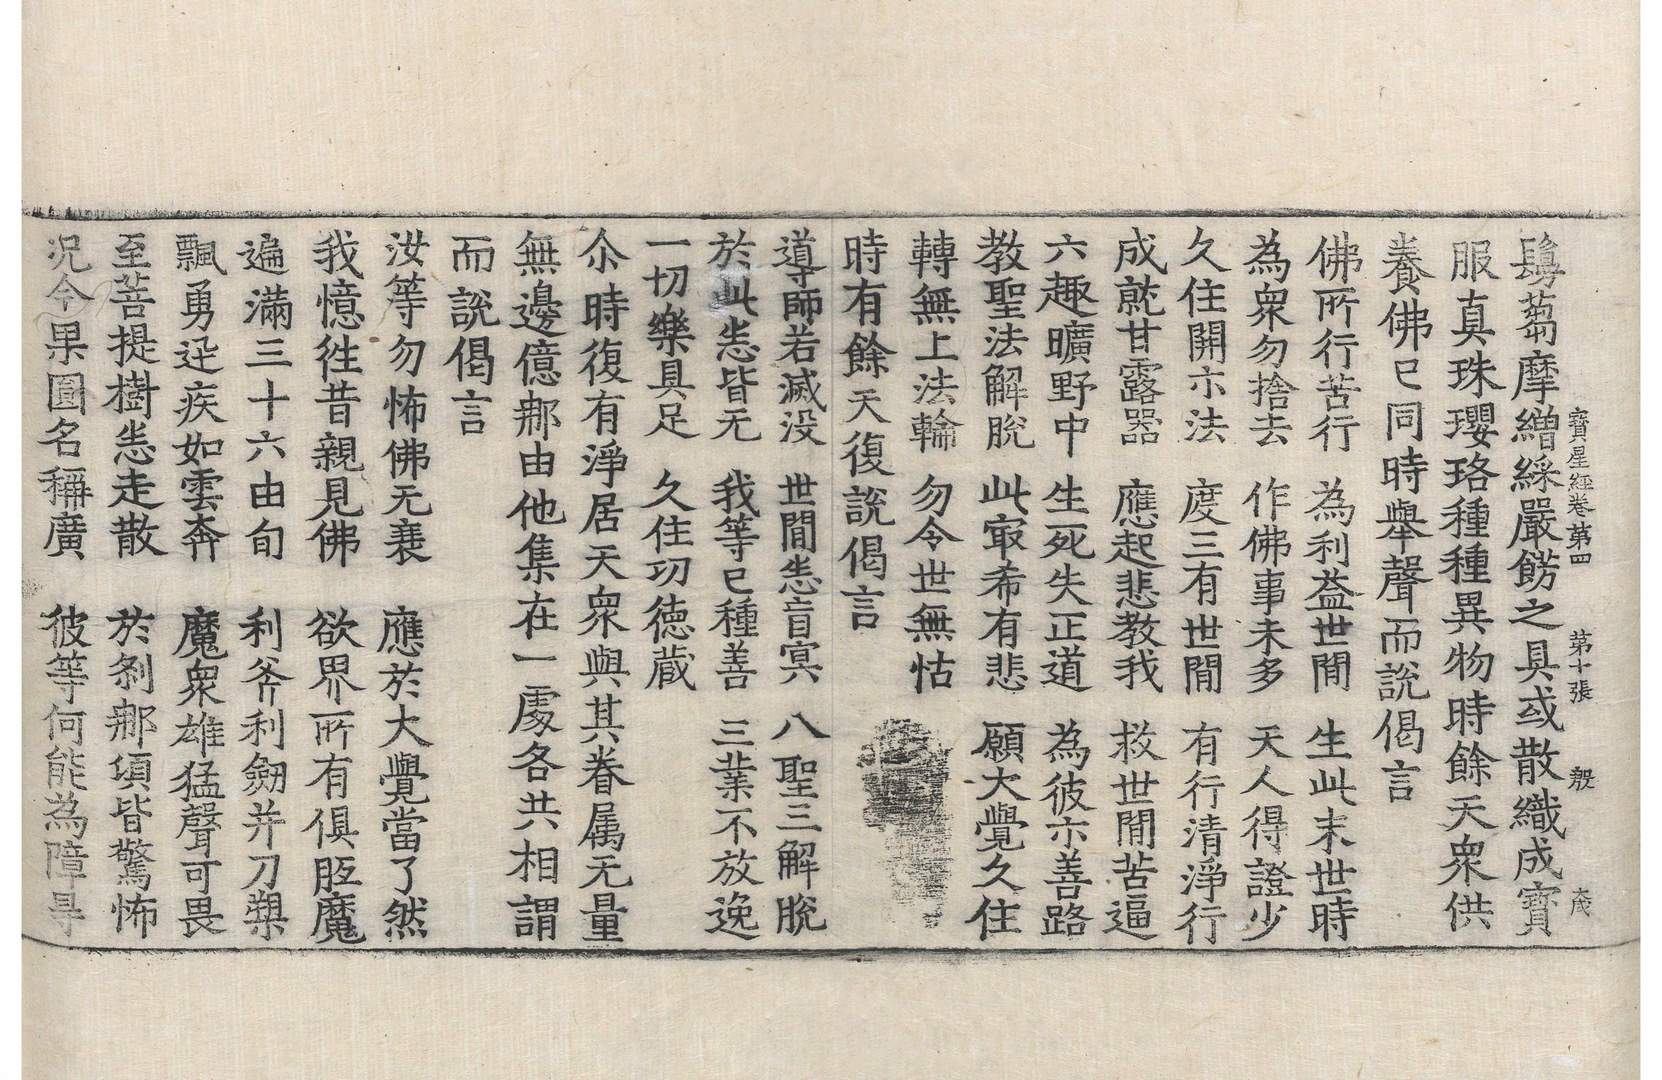 寶星經卷第四　第十張　殷　大茂
鬘蒭摩繒綵嚴餝之具或散織成寶
服真珠瓔珞種種異物時餘天衆供
養佛已同時舉聲而說偈言
佛所行苦行　為利益世間　生此末世時
為衆勿捨去　作佛事未多　天人得證少
久住開示法　度三有世間　有行清淨行
成就甘露器　應起悲教我　救世間苦逼
六趣曠野中　生死失正道　為彼示善路
教聖法解脫　此㝡希有悲　願大覺久住
轉無上法輪　勿令世無怙
時有餘天復說偈言
導師若滅没　世間悉盲冥　八聖三解脫
於此悉皆无　我等已種善　三業不放逸
一切樂具足　久住功德藏
尒時復有淨居天衆與其眷属无量
無邊億那由他集在一處各共相謂
而說偈言
汝等勿怖佛无衰　應於大覺當了然
我憶徃昔親見佛　欲界所有俱胝魔
遍滿三十六由旬　利斧利劒并刀槊
飄勇迅疾如雲奔　魔衆雄猛聲可畏
至菩提樹悉走散　於刹那頃皆驚怖
況今果圓名稱廣　彼等何能為障㝵